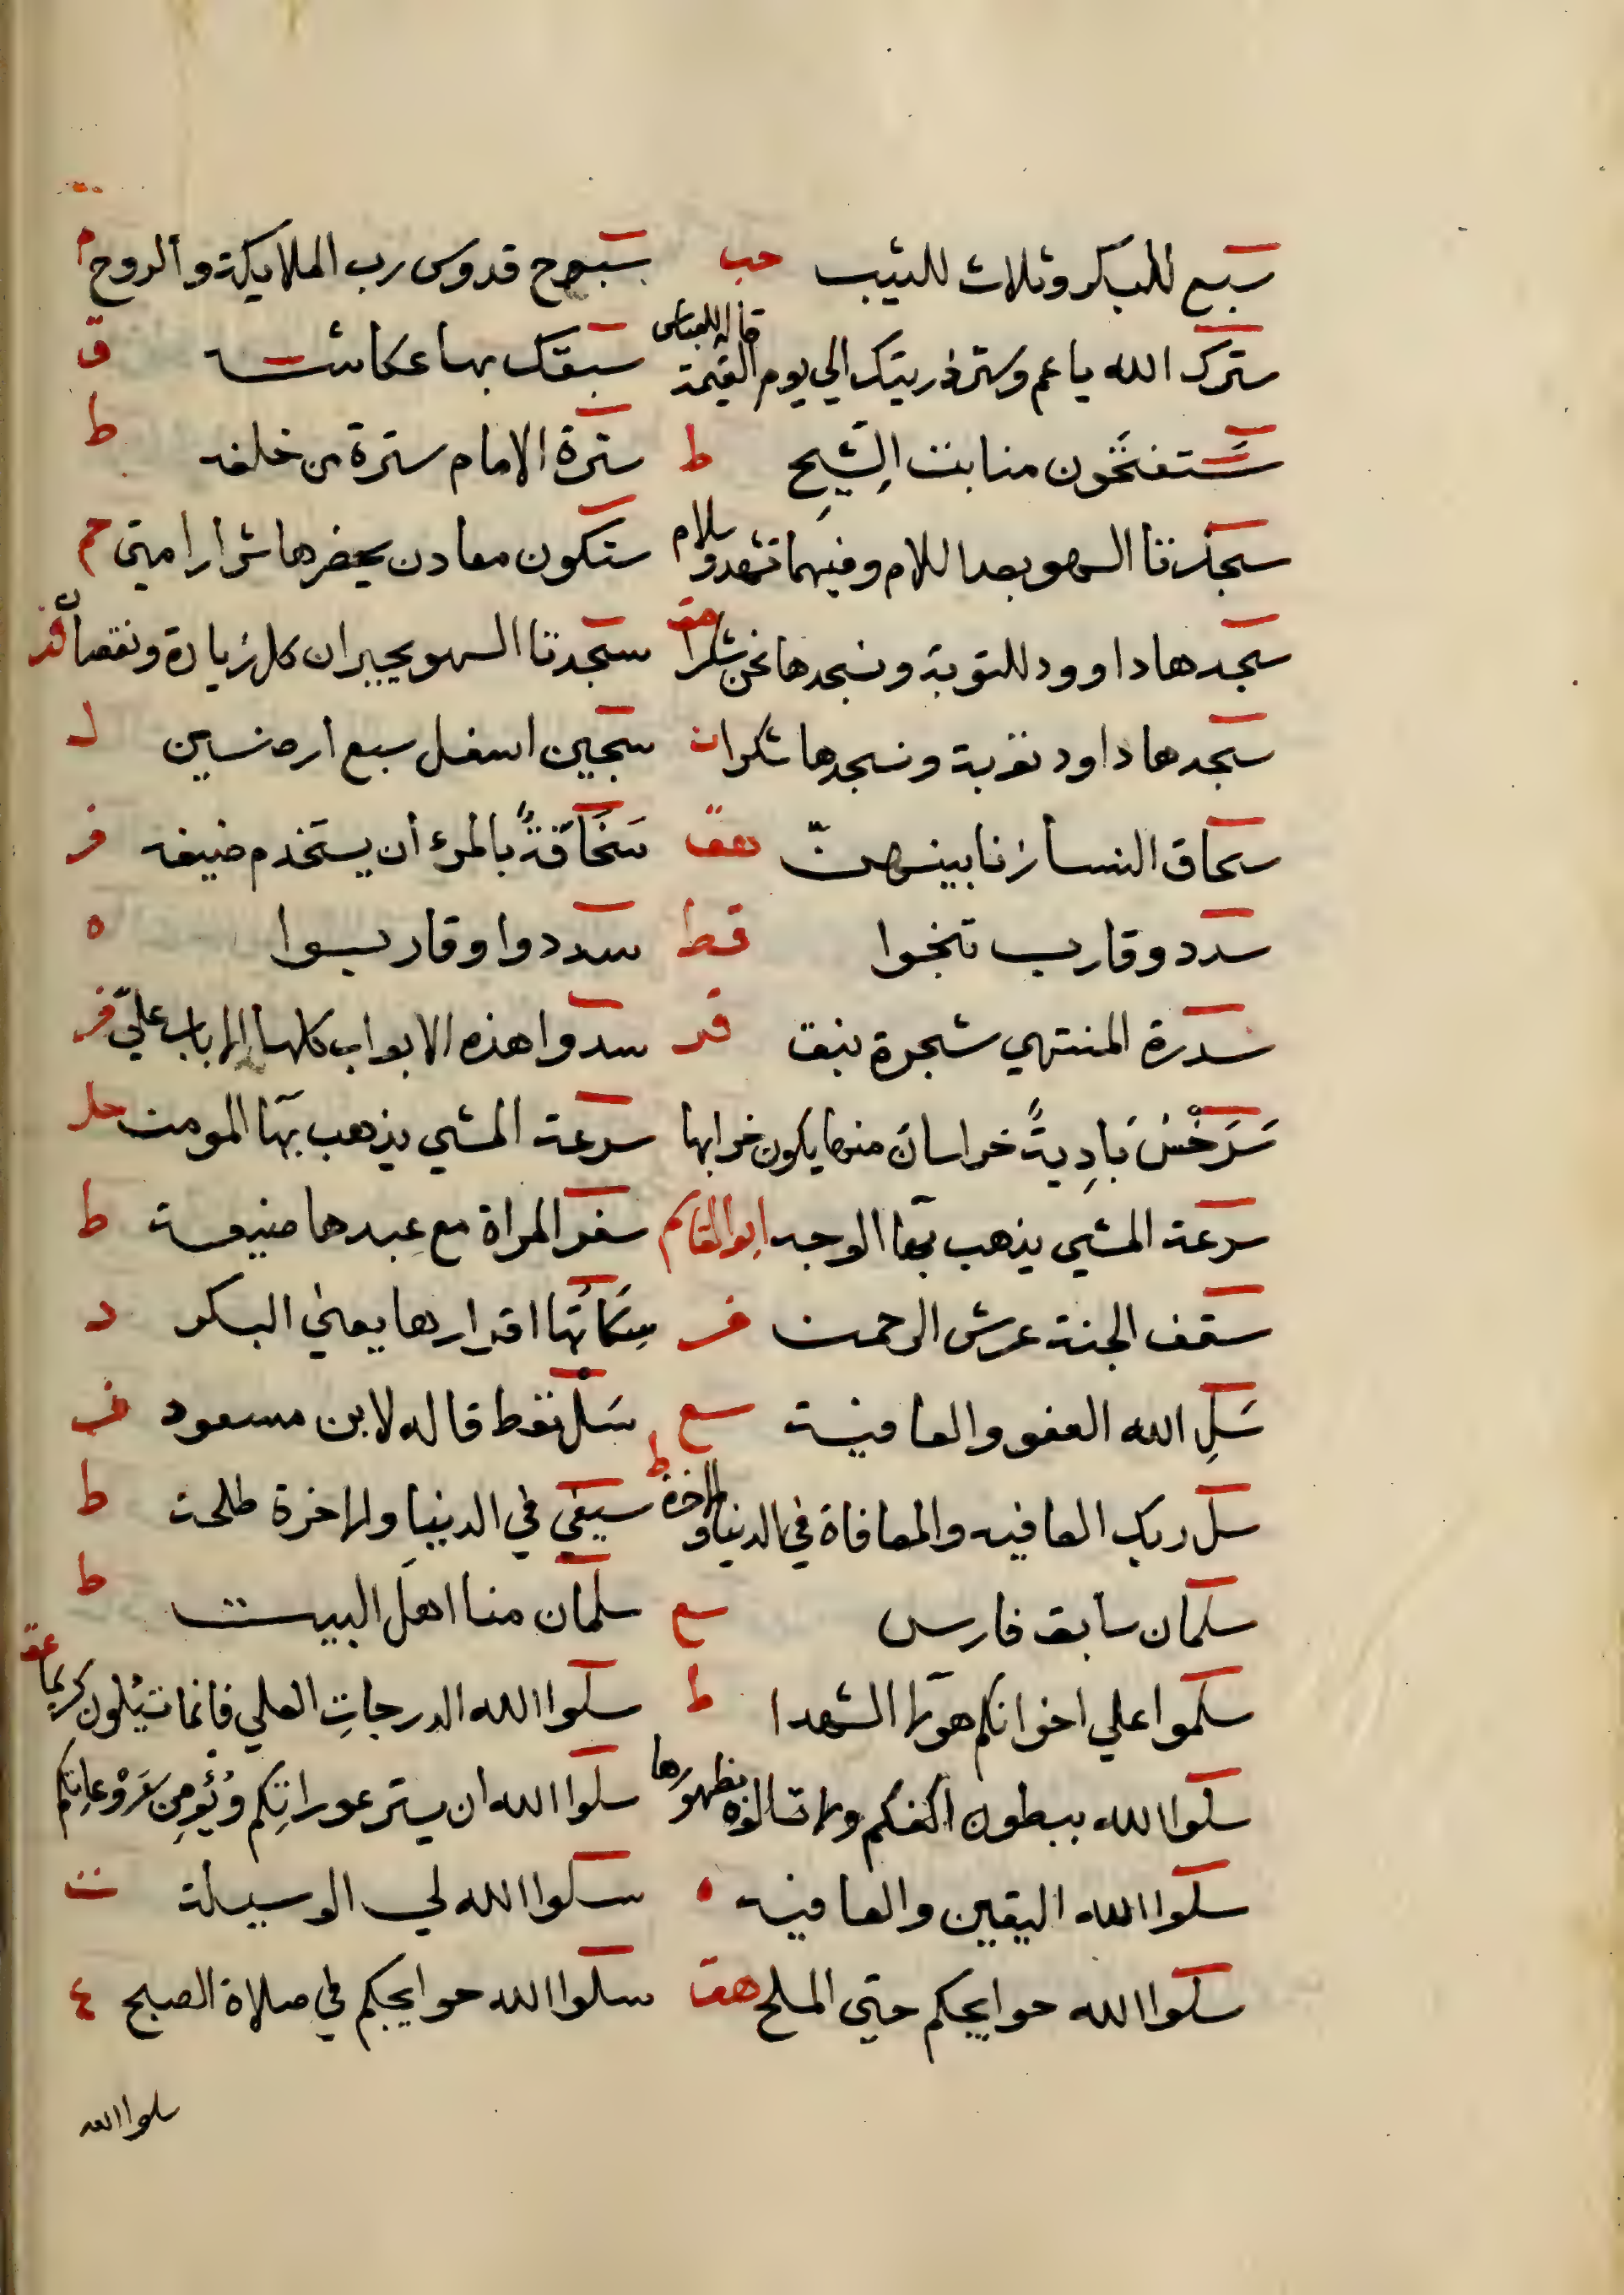 سبع للبكر وثلاث للثيب حب سبوح قدوس رب الملايكة والروح م
سترك الله ياعم وستر ذريتك الي يوم القيمة قاله للعباس سبقك بها عكاشة ق
ستفتحون منابت الشيح ط سترة الامام سترة من خلفه ط
سجدتا السهو بعد السلام وفيهما تشهد وسلام ستكون معادن يحضرها شرار امتي حم
سجدها داوود للتوبة ونسجدها نحن شكرا سجدتا السهو يجبران كل زيادة ونقصان فر
سجدها داود توبة ونسجدها شكرا ن سجين اسفل سبع ارضين ل
سحاق النسا زنا بينهن هق سخافة بالمرء أن يستخدم ضيفه فر
سدد وقارب تنجوا قط سددوا وقاربوا ه
سدرة المنتهي شجرة نبق سدوا هذه الابواب كلها الا باب علي فر
سرخس بادية خراسان منها يكون خرابها سرعة المشي يذهب بها المومن حل
سرعة المشي يذهب بها الوجه ابو القاسم سفر المراة مع عبدها ضيعة ط
سقف الجنة عرش الرحمن فر سكاتها اقرارها يعني البكر د
سل الله العفو والعافية سع سل تعط قاله لابن مسعود
سل ربك العافيه والمعافاة في الدنيا والاخرة ط سيفي في الدنيا والاخرة طلحة ط
سلمان سابق فارس سع سلمان منا اهل البيت ط
سلموا علي اخوانكم هولا الشهدا ط سلوا الله الدرجات العلي فانما تسٔلون كريما عق
سلوا الله ببطون اكفكم ولا تسالوه بظهورها سلوا الله ان يستر عوراتكم ويؤمن روعاتكم
سلوا الله اليقين والعافيه ه سلوا الله لي الوسيلة ت
سلوا الله حوايجكم حتي الملح هق سلوا الله حوايجكم في صلاة الصبح ع
سلوا الله